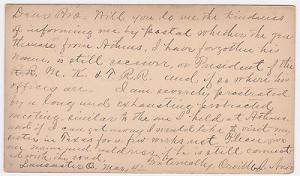 Dear Bro. Will you do me the kindness
of informing me by postal whether the gen
theuese from Athens, I have forgotten his
name, is still receiver, or President of the
M. K & T R.R. and if so where his
offices are. I am severely prostrated
by a long and exhausting protracted
meeting similar to the one I held at Athens
and if I can get away I would like to visit my
sister in for a few weeks rest. Please give
me name and address, if he is still connect
ed with the road. Fraternally
Lancaster O. Mar,